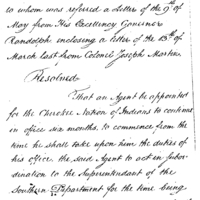 to whom was referred a Letter of the 9th of
May from His Excellency Governor
Randolph inclosing a letter of the 15th of
March last from Colonel Joseph Martin
Resolved
That an Agent be appointed
for the Cherokee Nation of Indians to continue
in office six months, to commence from the
time he shall take upon him the duties of
his office, the said Agent to act in subor-
dination to the Superintendant of the
Southern Department for the time being